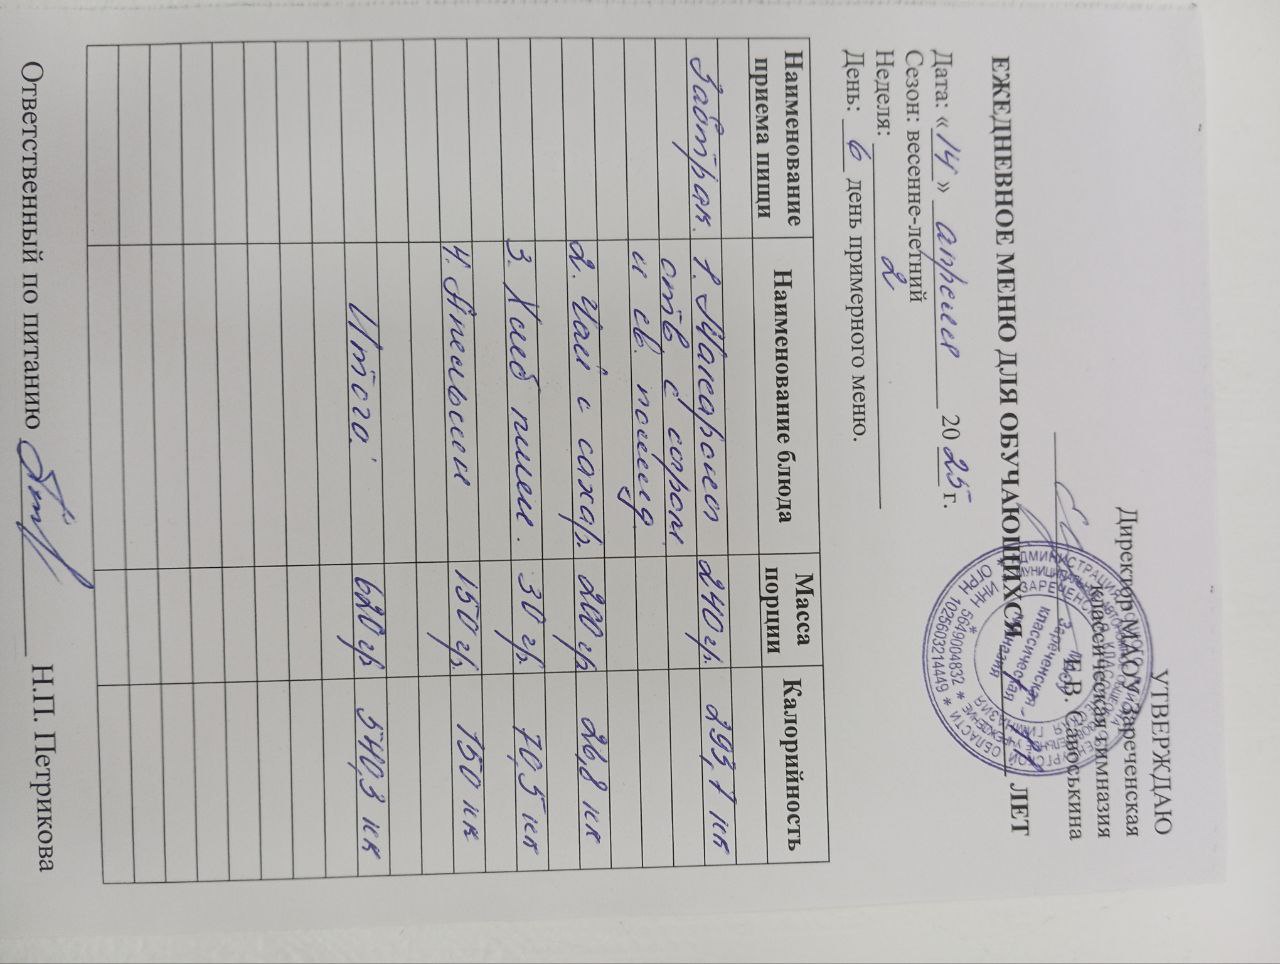 УТВЕРЖДАЮ
Директор МАОУ Зареченская
классическая гимназия
Е.В. Савоськина
ЕЖЕДНЕВНОЕ МЕНЮ ДЛЯ ОБУЧАЮЩИХСЯ ЛЕТ
Дата: «14» апреля 2025 г.
Сезон: весенне-летний
Неделя: 2
День: 6 день примерного меню.
Наименование приема пищи Наименование блюда Масса порции Калорийность
Завтрак. 1. Макароны 240 гр. 293,1 кк
отв с сыром
и св. помид
2. Чай с сахар. 200 гр 26,8 кк
3. Хлеб пшен. 30 гр. 70,5 кк
4. Апельсин 150 гр. 150 кк
Итого: 620 гр 540,3 кк
Ответственный по питанию Н.П. Петрикова
ИНН 5649004832 * ОГРН 1025603214449 *
Зареченская
классическая
гимназия